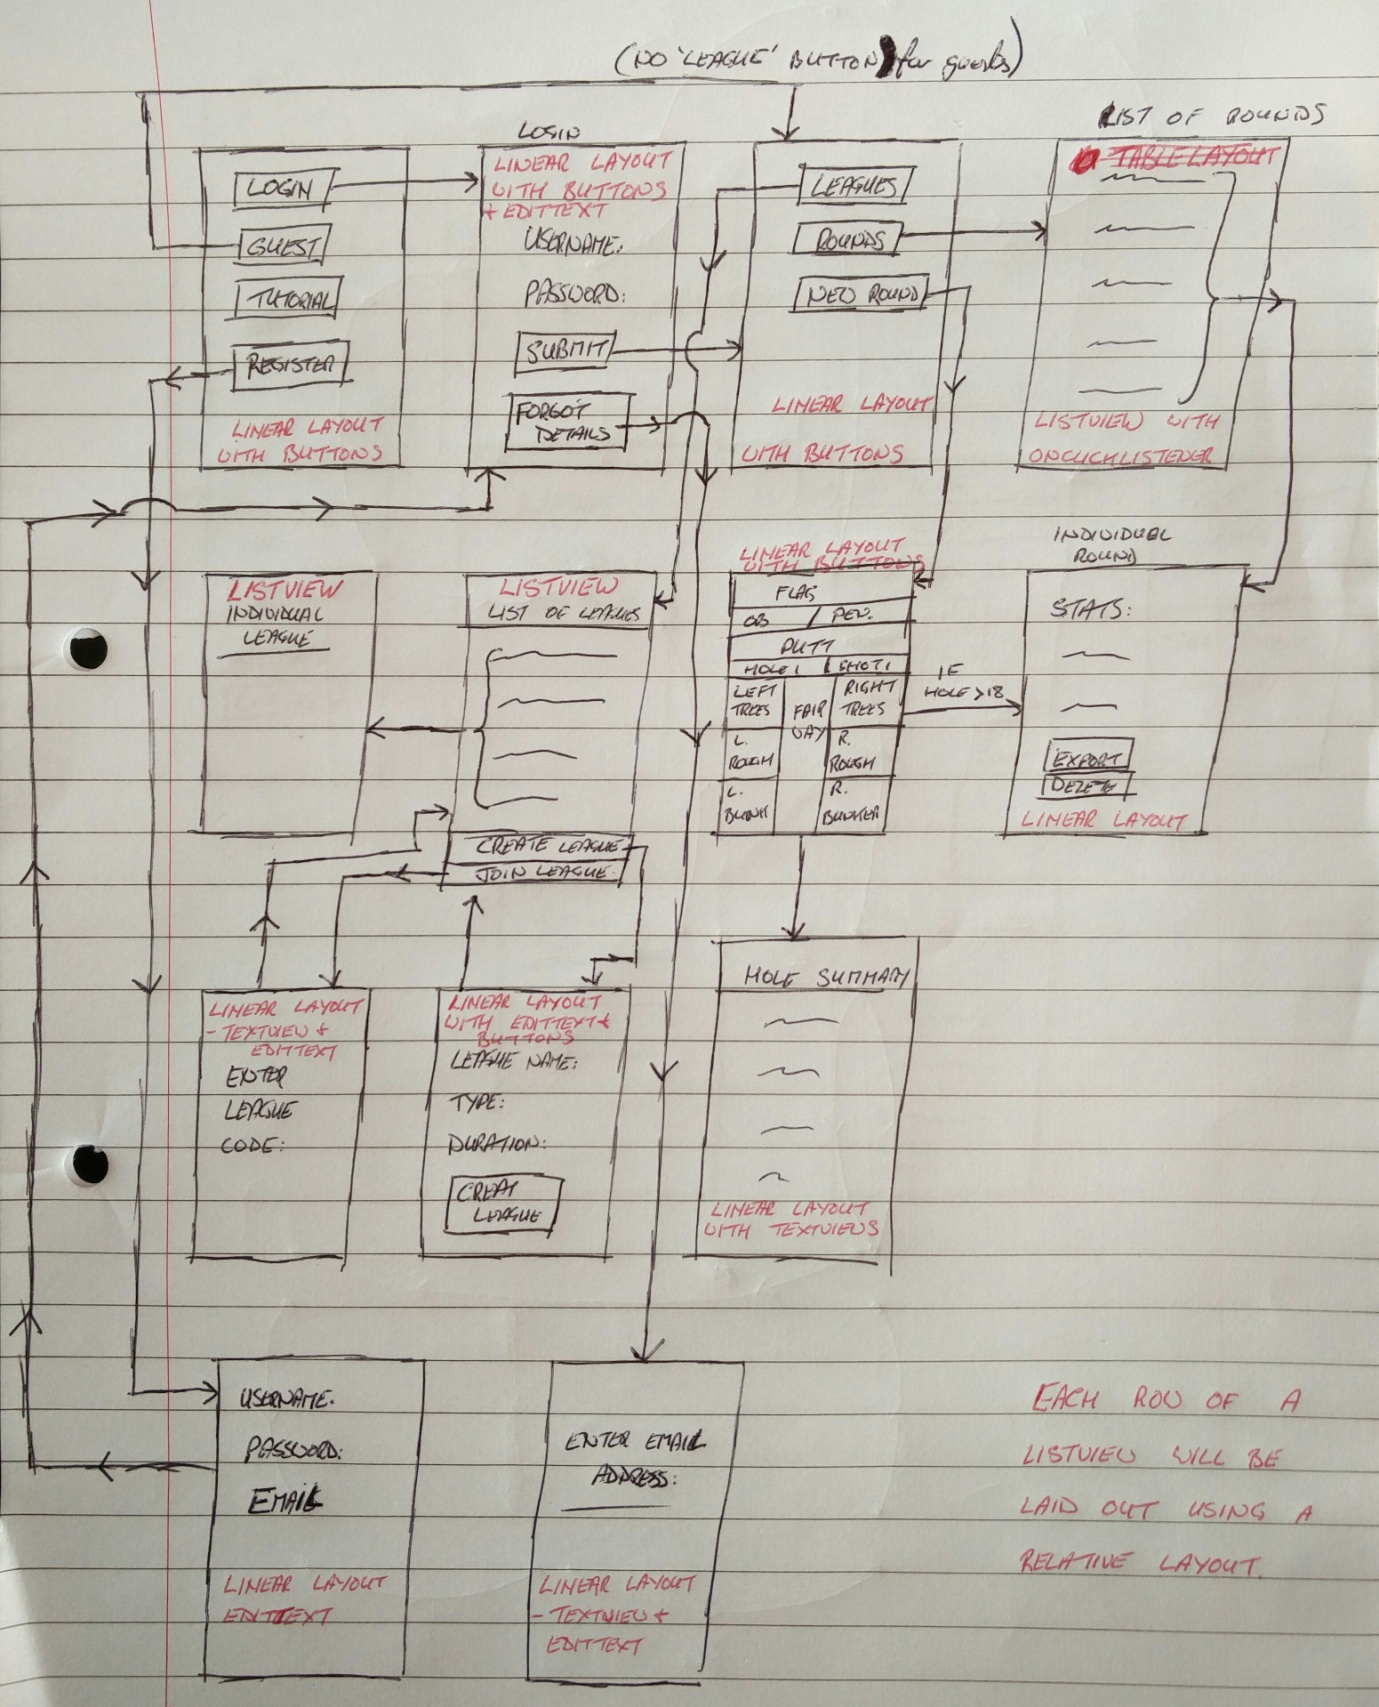 (NO 'LEAGUE' BUTTON for guests)
LOGIN
LOGIN
GUEST
TUTORIAL
REGISTER
LINEAR LAYOUT
WITH BUTTONS
LINEAR LAYOUT
WITH BUTTONS
+ EDITTEXT
USERNAME:
PASSWORD:
SUBMIT
FORGOT
DETAILS
LEAGUES
ROUNDS
NEW ROUND
LINEAR LAYOUT
WITH BUTTONS
LIST OF ROUNDS
TABLE LAYOUT
LISTVIEW WITH
ONCLICKLISTENER
LISTVIEW
INDIVIDUAL
LEAGUE
LISTVIEW
LIST OF LEAGUES
CREATE LEAGUE
JOIN LEAGUE
LINEAR LAYOUT
WITH BUTTONS
FLAG
OB / PEN.
PUTT
HOLE 1 SHOT 1
LEFT
TREES
FAIR
WAY
RIGHT
TREES
L.
ROUGH
R.
ROUGH
L.
BUNK
R.
BUNKER
IF
HOLE > 18
INDIVIDUAL
ROUND
STATS:
EXPORT
DELETE
LINEAR LAYOUT
LINEAR LAYOUT
- TEXTVIEW +
EDITTEXT
ENTER
LEAGUE
CODE:
LINEAR LAYOUT
WITH EDITTEXT +
BUTTONS
LEAGUE NAME:
TYPE:
DURATION:
CREAT
LEAGUE
HOLE SUMMARY
LINEAR LAYOUT
WITH TEXTVIEWS
USERNAME:
PASSWORD:
EMAIL
LINEAR LAYOUT
EDITTEXT
ENTER EMAIL
ADDRESS:
LINEAR LAYOUT
- TEXTVIEW +
EDITTEXT
EACH ROW OF A
LISTVIEW WILL BE
LAID OUT USING A
RELATIVE LAYOUT.